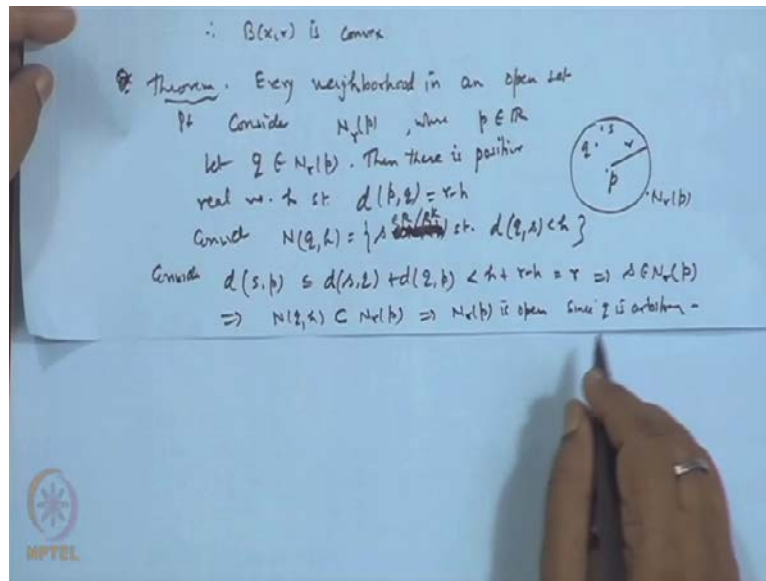 ∴ B(x,r) is convex
Theorem. Every neighborhood in an open set
Pf Consider N_r(p), where p ∈ ℝ
Let q ∈ N_r(p). Then there is positive
real no. h st. d(p,q) = r-h
Consider N(q,h) = { s ∈ℝ/ℝᵏ st. d(q,s) < h }
Consider d(s,p) ≤ d(s,q) + d(q,p) < h + r-h = r ⇒ s ∈ N_r(p)
⇒ N(q,h) ⊂ N_r(p) ⇒ N_r(p) is open Since q is arbitrary -
s
q
r
p
N_r(p)
NPTEL